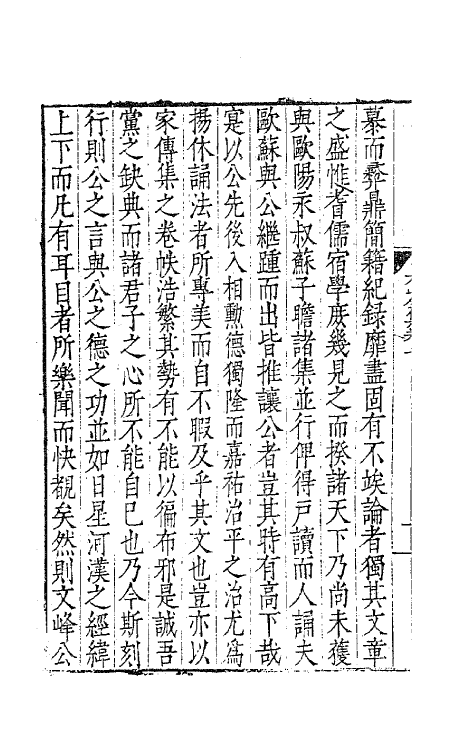 慕而彞鼎簡籍紀録靡盡固有不竢論者獨其文章
之盛惟耆儒宿學庶幾見之而揆諸天下乃尚未獲
與歐陽永叔蘇子瞻諸集並行俾得戸讀而人誦夫
歐蘇與公繼踵而出皆推讓公者豈其時有高下哉
寔以公先後入相勲德獨隆而嘉祐治平之治尤爲
揚休誦法者所專美而自不暇及乎其文也豈亦以
家傳集之卷帙浩繁其勢有不能以徧布邪是誠吾
黨之缺典而諸君子之心所不能自已也乃今斯刻
行則公之言與公之德之功並如日星河漢之經緯
上下而凡有耳目者所樂聞而快覩矣然則文峰公